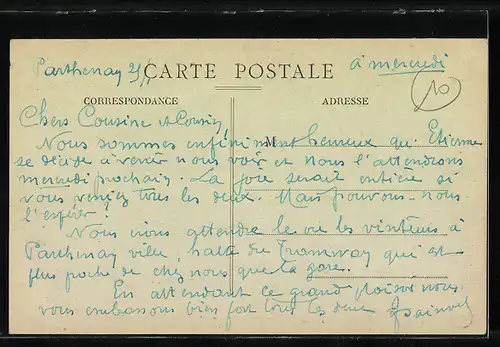 Parthenay
CARTE POSTALE
à mercredi
10
CORRESPONDANCE
ADRESSE
Chers Cousine et Cousin,
M
Nous sommes infiniment heureux qu'Etienne
se décide à venir nous voir et nous l'attendrons
mercredi prochain. La joie serait entière si
vous veniez tous les deux. Mais pouvons-nous
l'espérer!
Nous irons attendre le ou les visiteurs à
Parthenay ville, halte du Tramway qui est
plus proche de chez nous que la gare.
En attendant ce grand plaisir nous
vous embrassons bien fort tous les deux